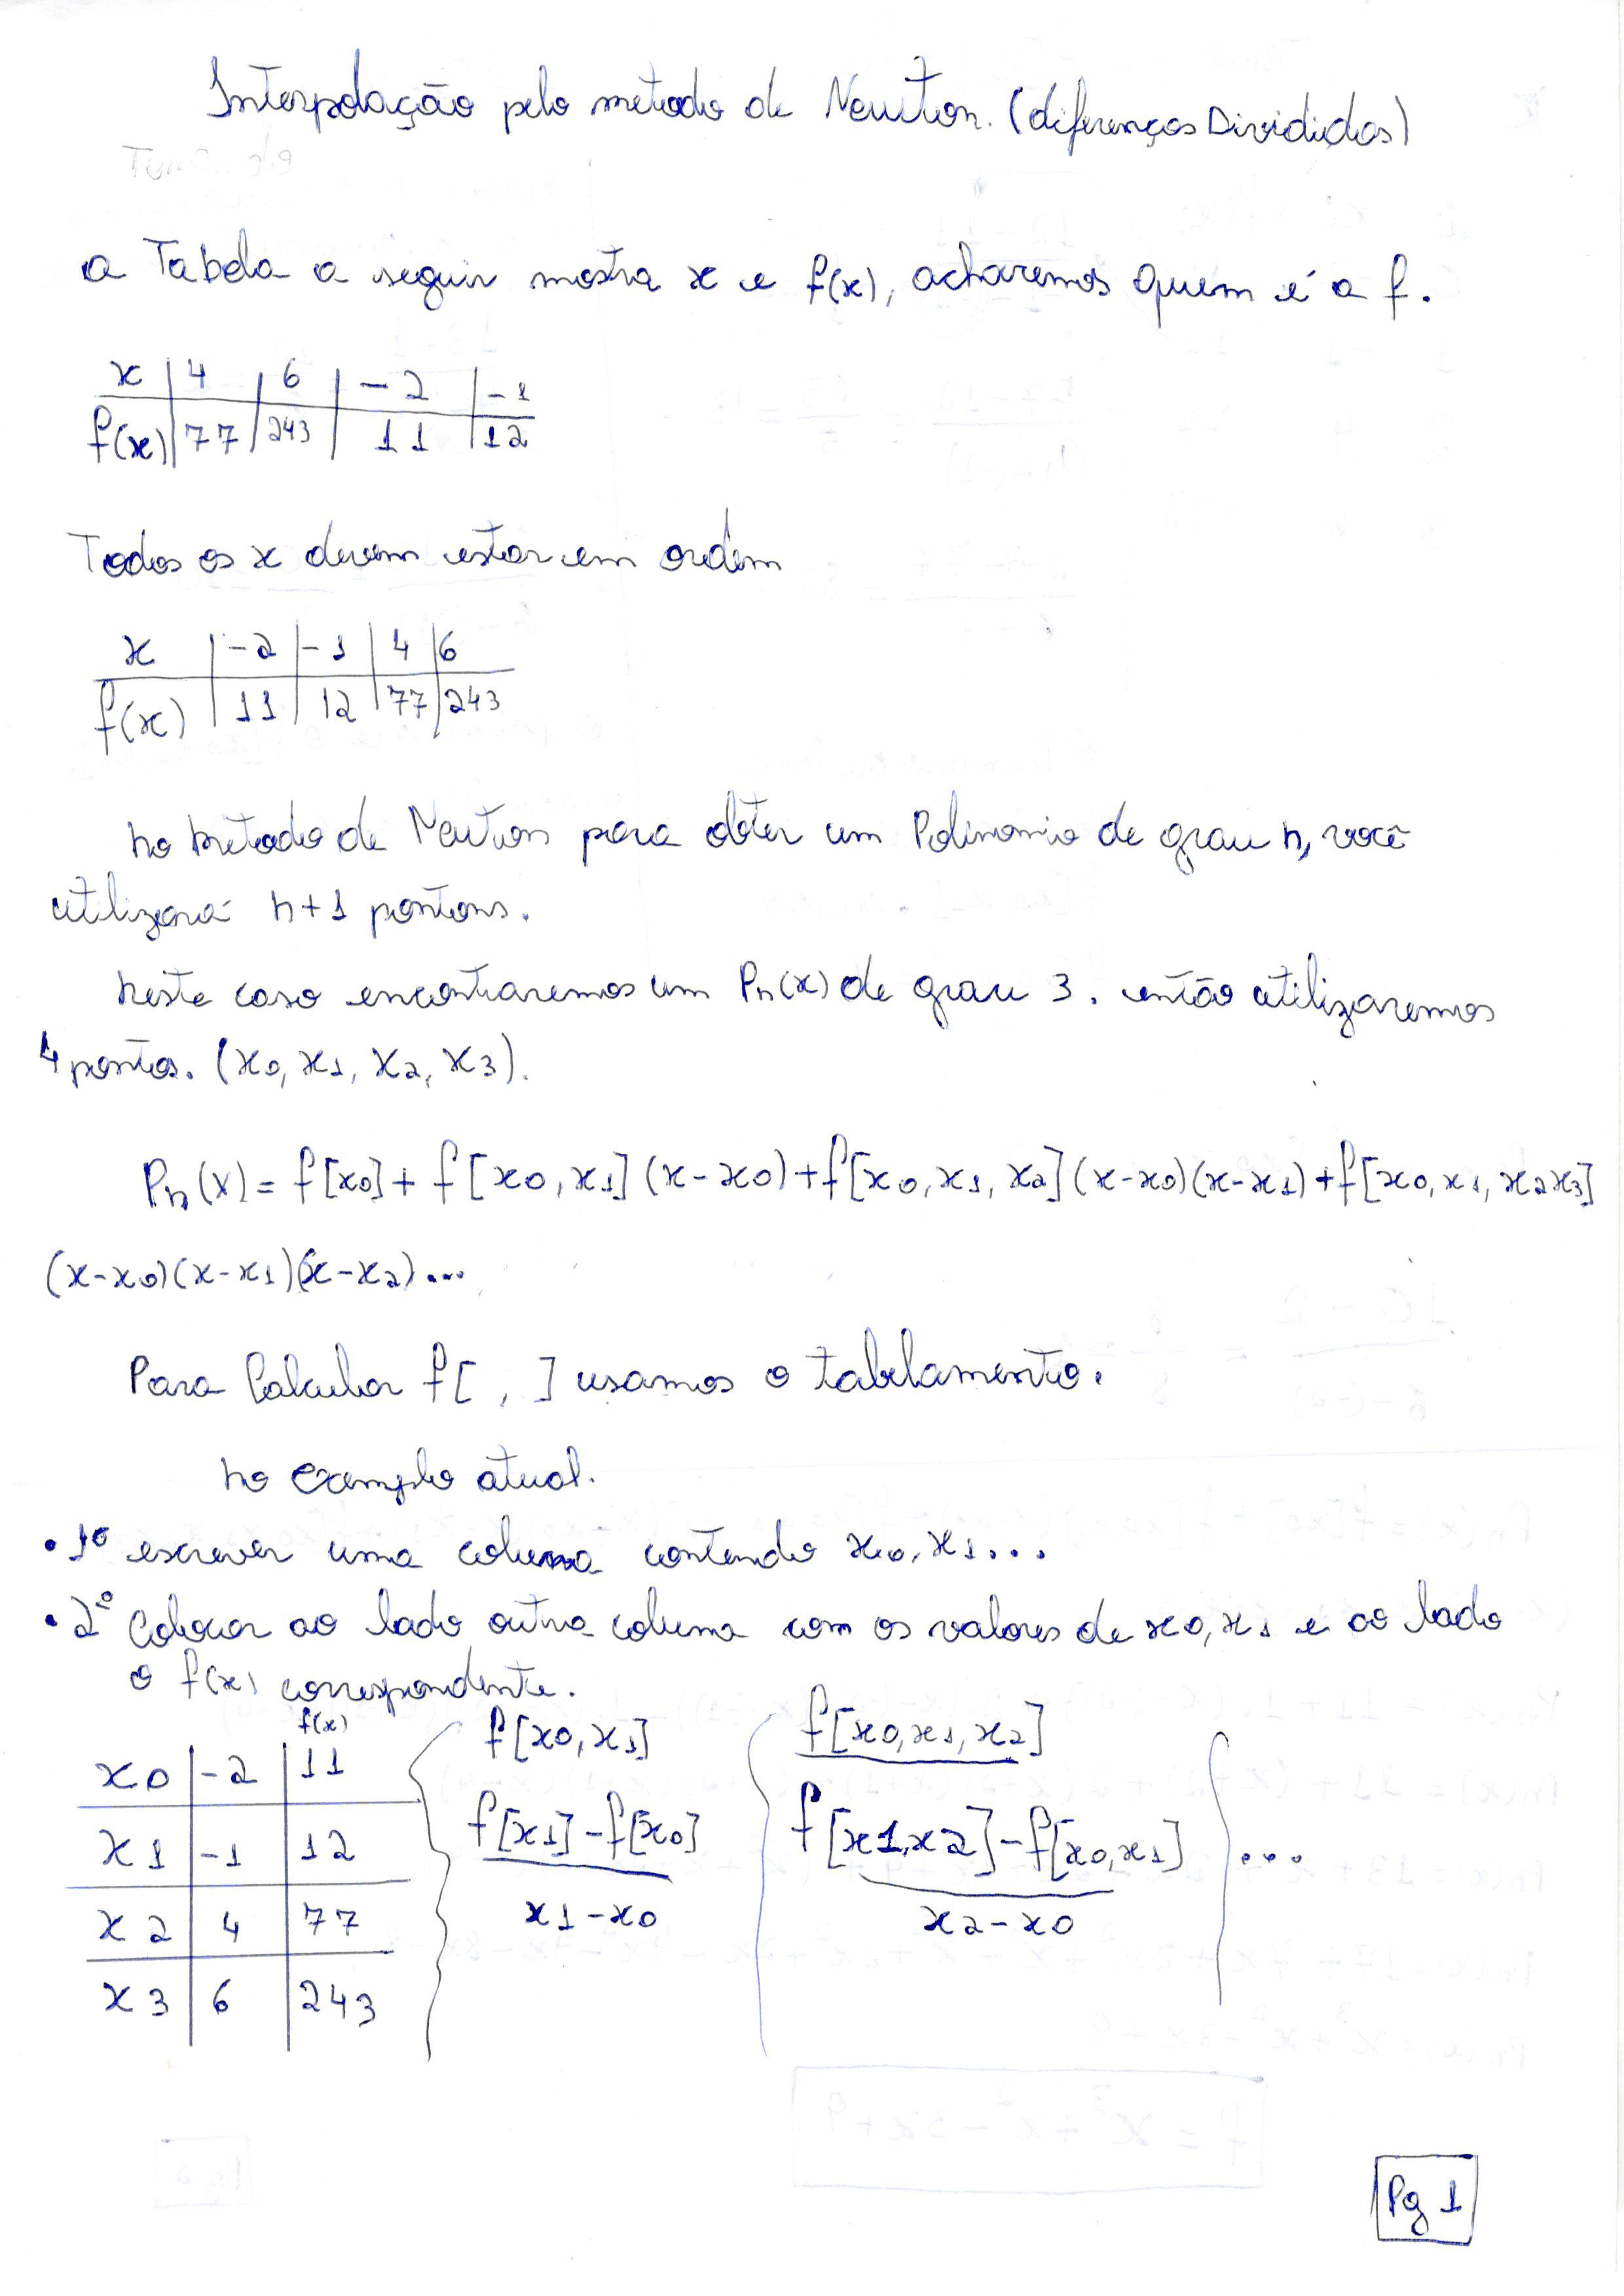 Interpolação pelo metodo de Newton. (diferenças Divididas)
a Tabela a seguir mostra x e f(x), acharemos quem é a f.
x | 4 | 6 | -2 | -1
f(x) | 77 | 243 | 11 | 12
Todos os x devem estar em ordem
x | -2 | -1 | 4 | 6
f(x) | 11 | 12 | 77 | 243
no metodo de Newton para obter um Polinomio de grau n, você
utilizará n+1 pontons.
neste caso encontraremos um Pn(x) de grau 3. então utilizaremos
4 pontos. (x0, x1, x2, x3).
Pn(x) = f[x0] + f[x0, x1] (x-x0) + f[x0, x1, x2] (x-x0)(x-x1) + f[x0, x1, x2x3]
(x-x0)(x-x1)(x-x2)...
Para Calcular f[ , ] usamos o tabelamento.
no exemplo atual.
• 1º escrever uma coluna contendo x0, x1...
• 2º Colocar ao lado outra coluna com os valores de x0, x1 e ao lado
o f(x) correspondente.
f(x)
x0 | -2 | 11
x1 | -1 | 12
x2 | 4 | 77
x3 | 6 | 243
f[x0, x1]
f[x1] - f[x0]
x1 - x0
f[x0, x1, x2]
f[x1, x2] - f[x0, x1]
x2 - x0
...
Pg 1